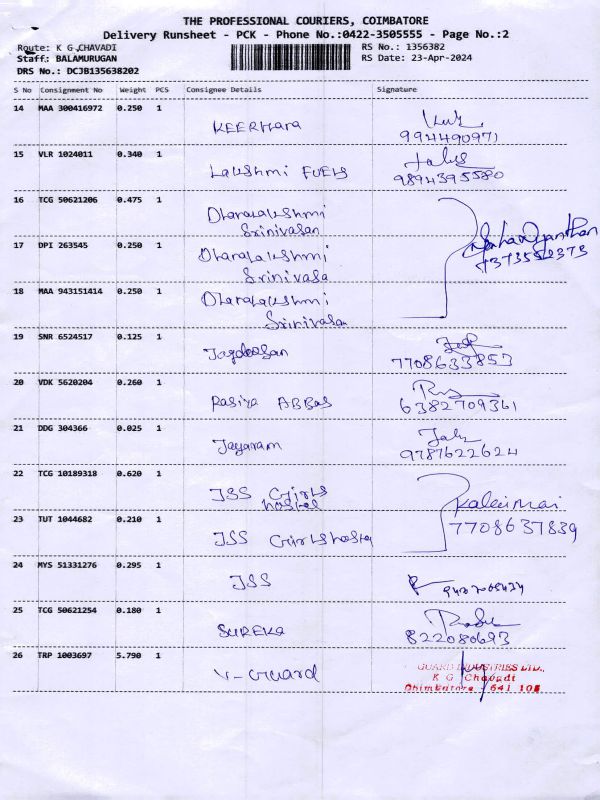 THE PROFESSIONAL COURIERS, COIMBATORE
Delivery Runsheet - PCK - Phone No.:0422-3505555 - Page No.:2
Route: K G CHAVADI RS No.: 1356382
Staff.: BALAMURUGAN RS Date: 23-Apr-2024
DRS No.: DCJB135638202
S No Consignment No Weight PCS Consignee Details Signature
14 MAA 300416972 0.250 1
KEERTHARA
9944490971
15 VLR 1024011 0.340 1
Lakshmi FUELS
9894395580
16 TCG 50621206 0.475 1
Dharalakshmi
Srinivasan
17 DPI 263545 0.250 1
Dharalakshmi
Srinivasa
18 MAA 943151414 0.250 1
Dharalakshmi
Srinivasan
19 SNR 6524517 0.125 1
7708633853
20 VDK 5620204 0.260 1
Rasiya ABBAS
6382709361
21 DDG 304366 0.025 1
Jayaram
9787622624
22 TCG 10189318 0.620 1
JSS Girls
hostel
23 TUT 1044682 0.210 1
JSS Girls hostel
7708637839
24 MYS 51331276 0.295 1
JSS
25 TCG 50621254 0.180 1
SUREKA
822080693
26 TRP 1003697 5.790 1
V-Guard
GUARD INDUSTRIES LTD.,
K G Chavadi
641 105